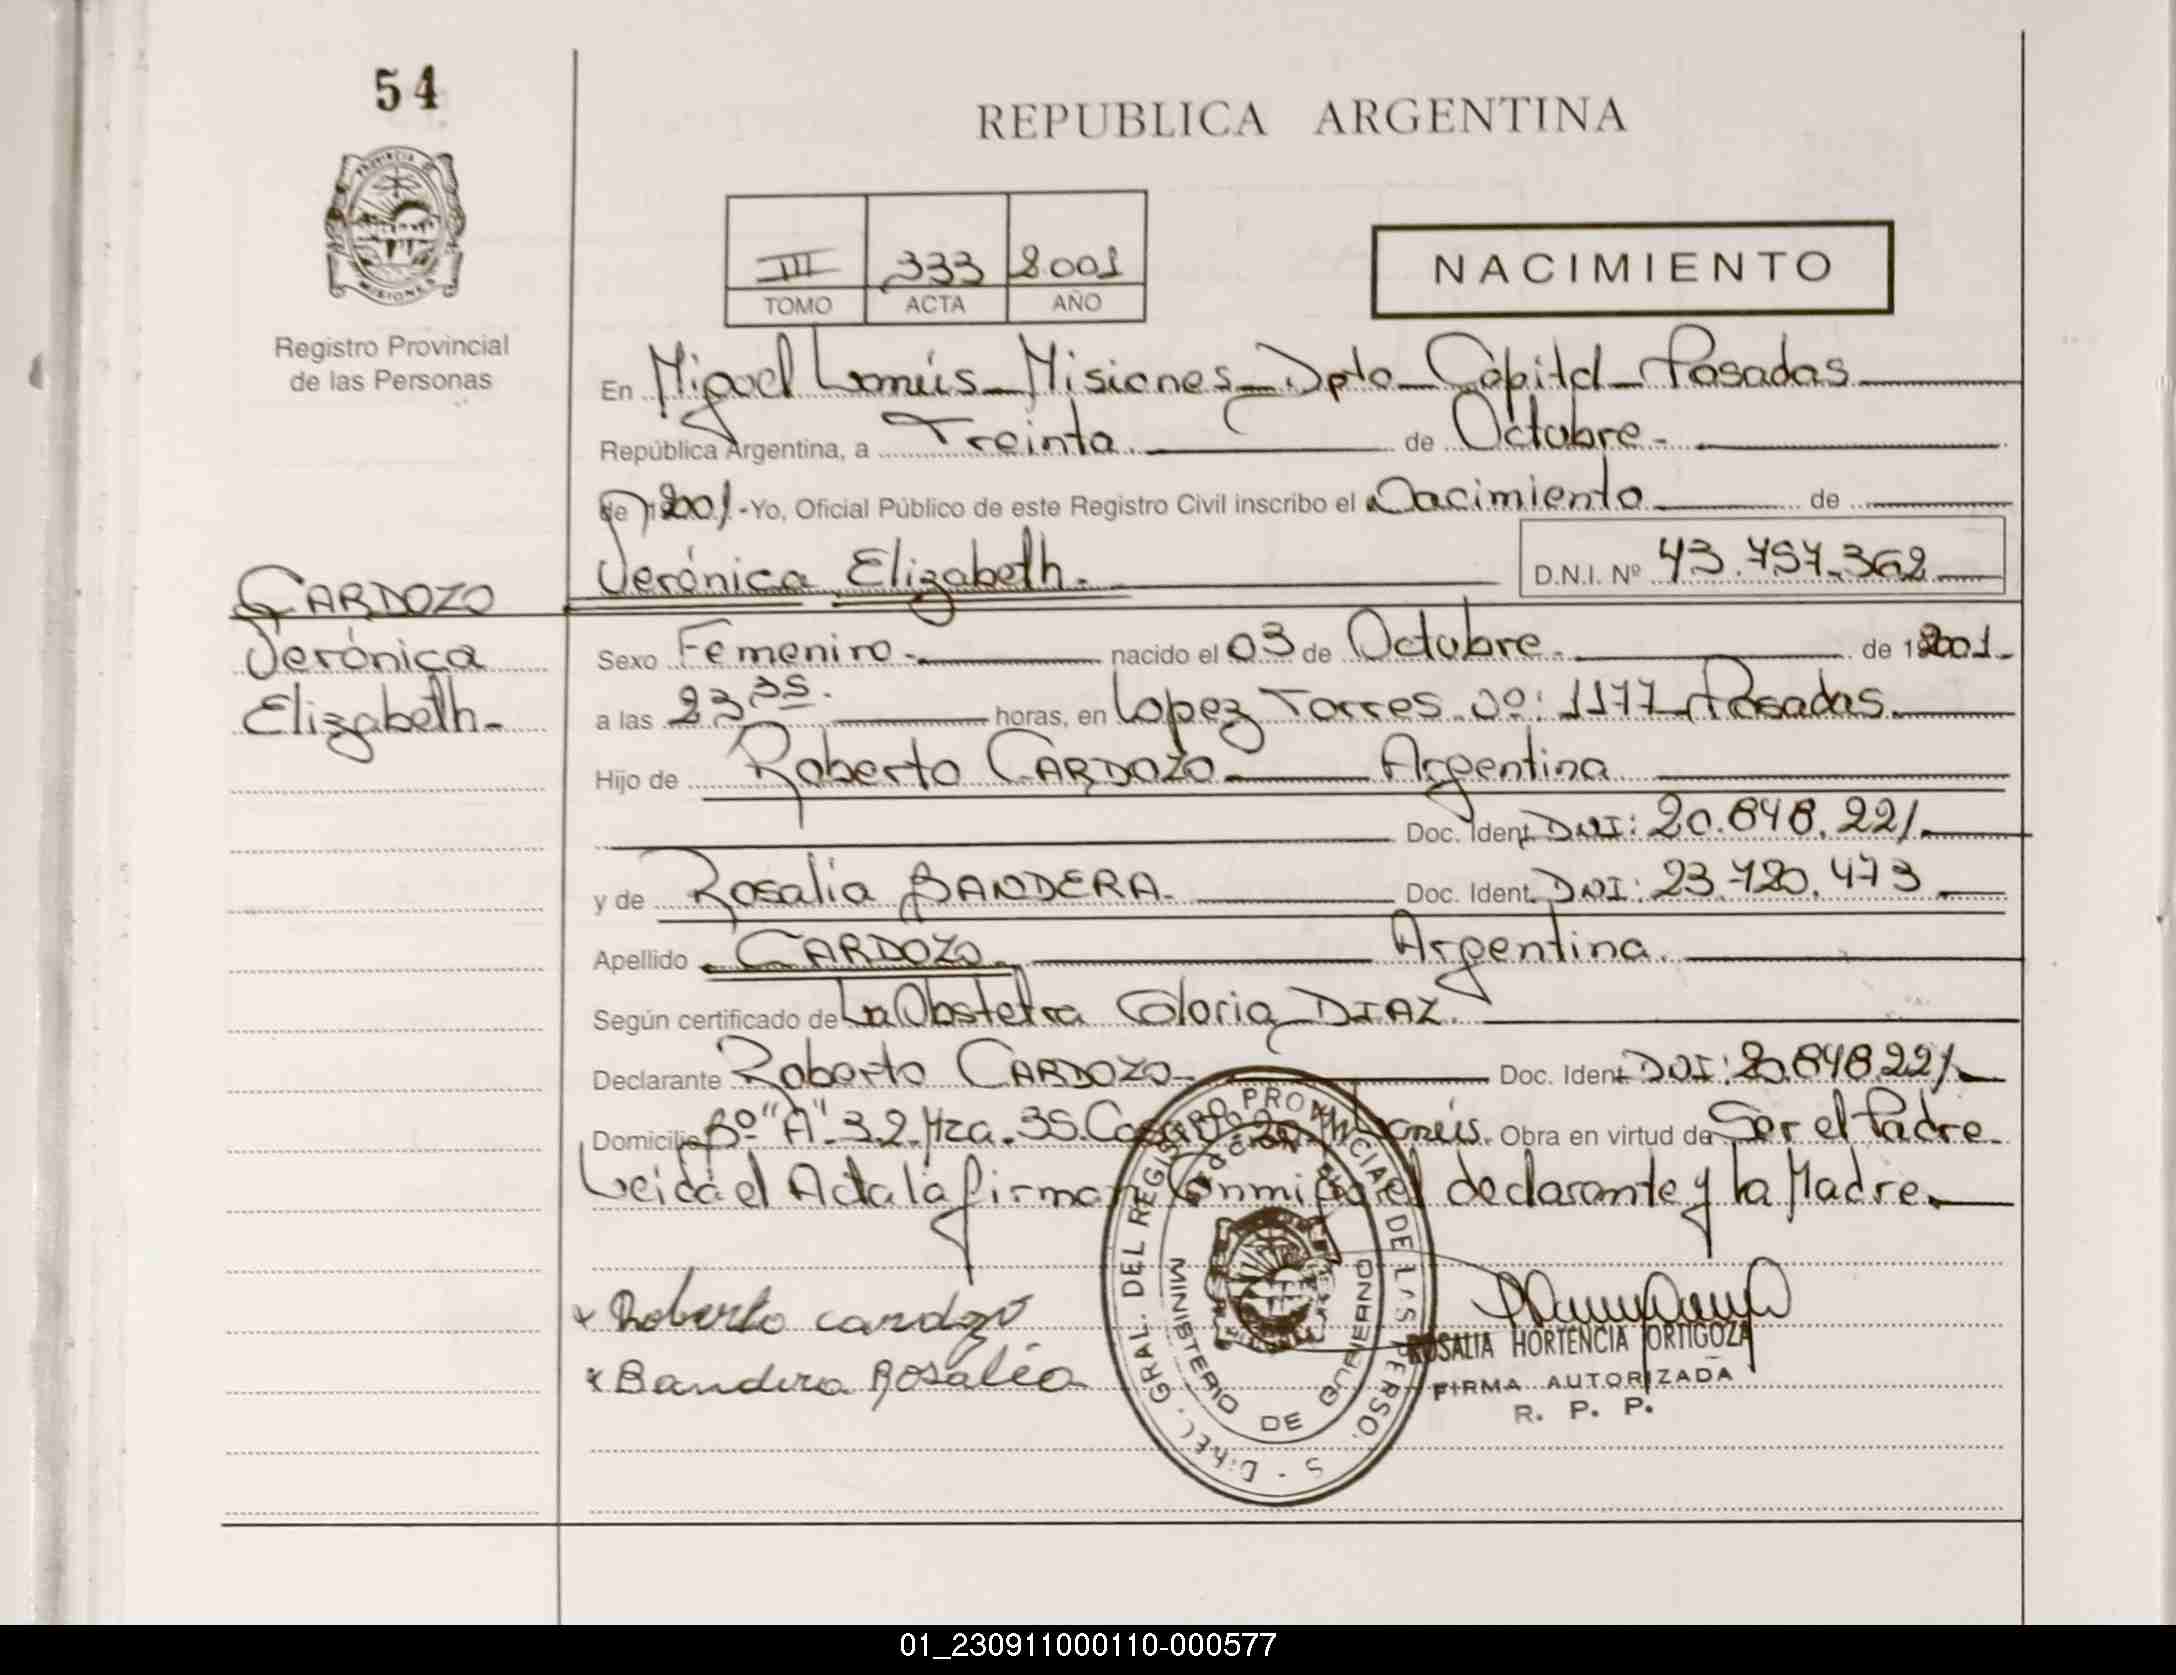 54
REPUBLICA ARGENTINA
PROVINCIA D
MISIONES
Registro Provincial
de las Personas
III 333 2.001
TOMO ACTA AÑO
NACIMIENTO
En Miguel Lanús - Misiones - Dpto - Capital - Posadas
República Argentina, a Treinta de Octubre.-
de 2001.-Yo, Oficial Público de este Registro Civil inscribo el Nacimiento de
Verónica Elizabeth.- D.N.I. Nº 43.757.362
CARDOZO
Verónica
Elizabeth.-
Sexo Femenino.- nacido el 03 de Octubre. de 2001.
a las 23 35. horas, en Lopez Torres Nº: 1177 - Posadas.
Hijo de Roberto CARDOZO - Argentina
Doc. Ident. DNI: 20.848.221.
y de Rosalia BANDERA. Doc. Ident. DNI: 23.720.473.
Apellido CARDOZO. Argentina.
Según certificado de La Obstetra Gloria DIAZ.
Declarante Roberto CARDOZO - Doc. Ident. DNI: 20.848.221.
Domicilio Bº "A" 3.2. Mza. 35. Casa Lanús. Obra en virtud de Ser el Padre.
Leida el Acta la firman Conmigo el declarante y la Madre.
Roberto cardozo
Bandera Rosalia
DIREC. GRAL. DEL REGISTRO PROVINCIAL DE LAS PERSO. S
MINISTERIO DE GOBIERNO
ROSALIA HORTENCIA ORTIGOZA
FIRMA AUTORIZADA
R. P. P.
01_230911000110-000577